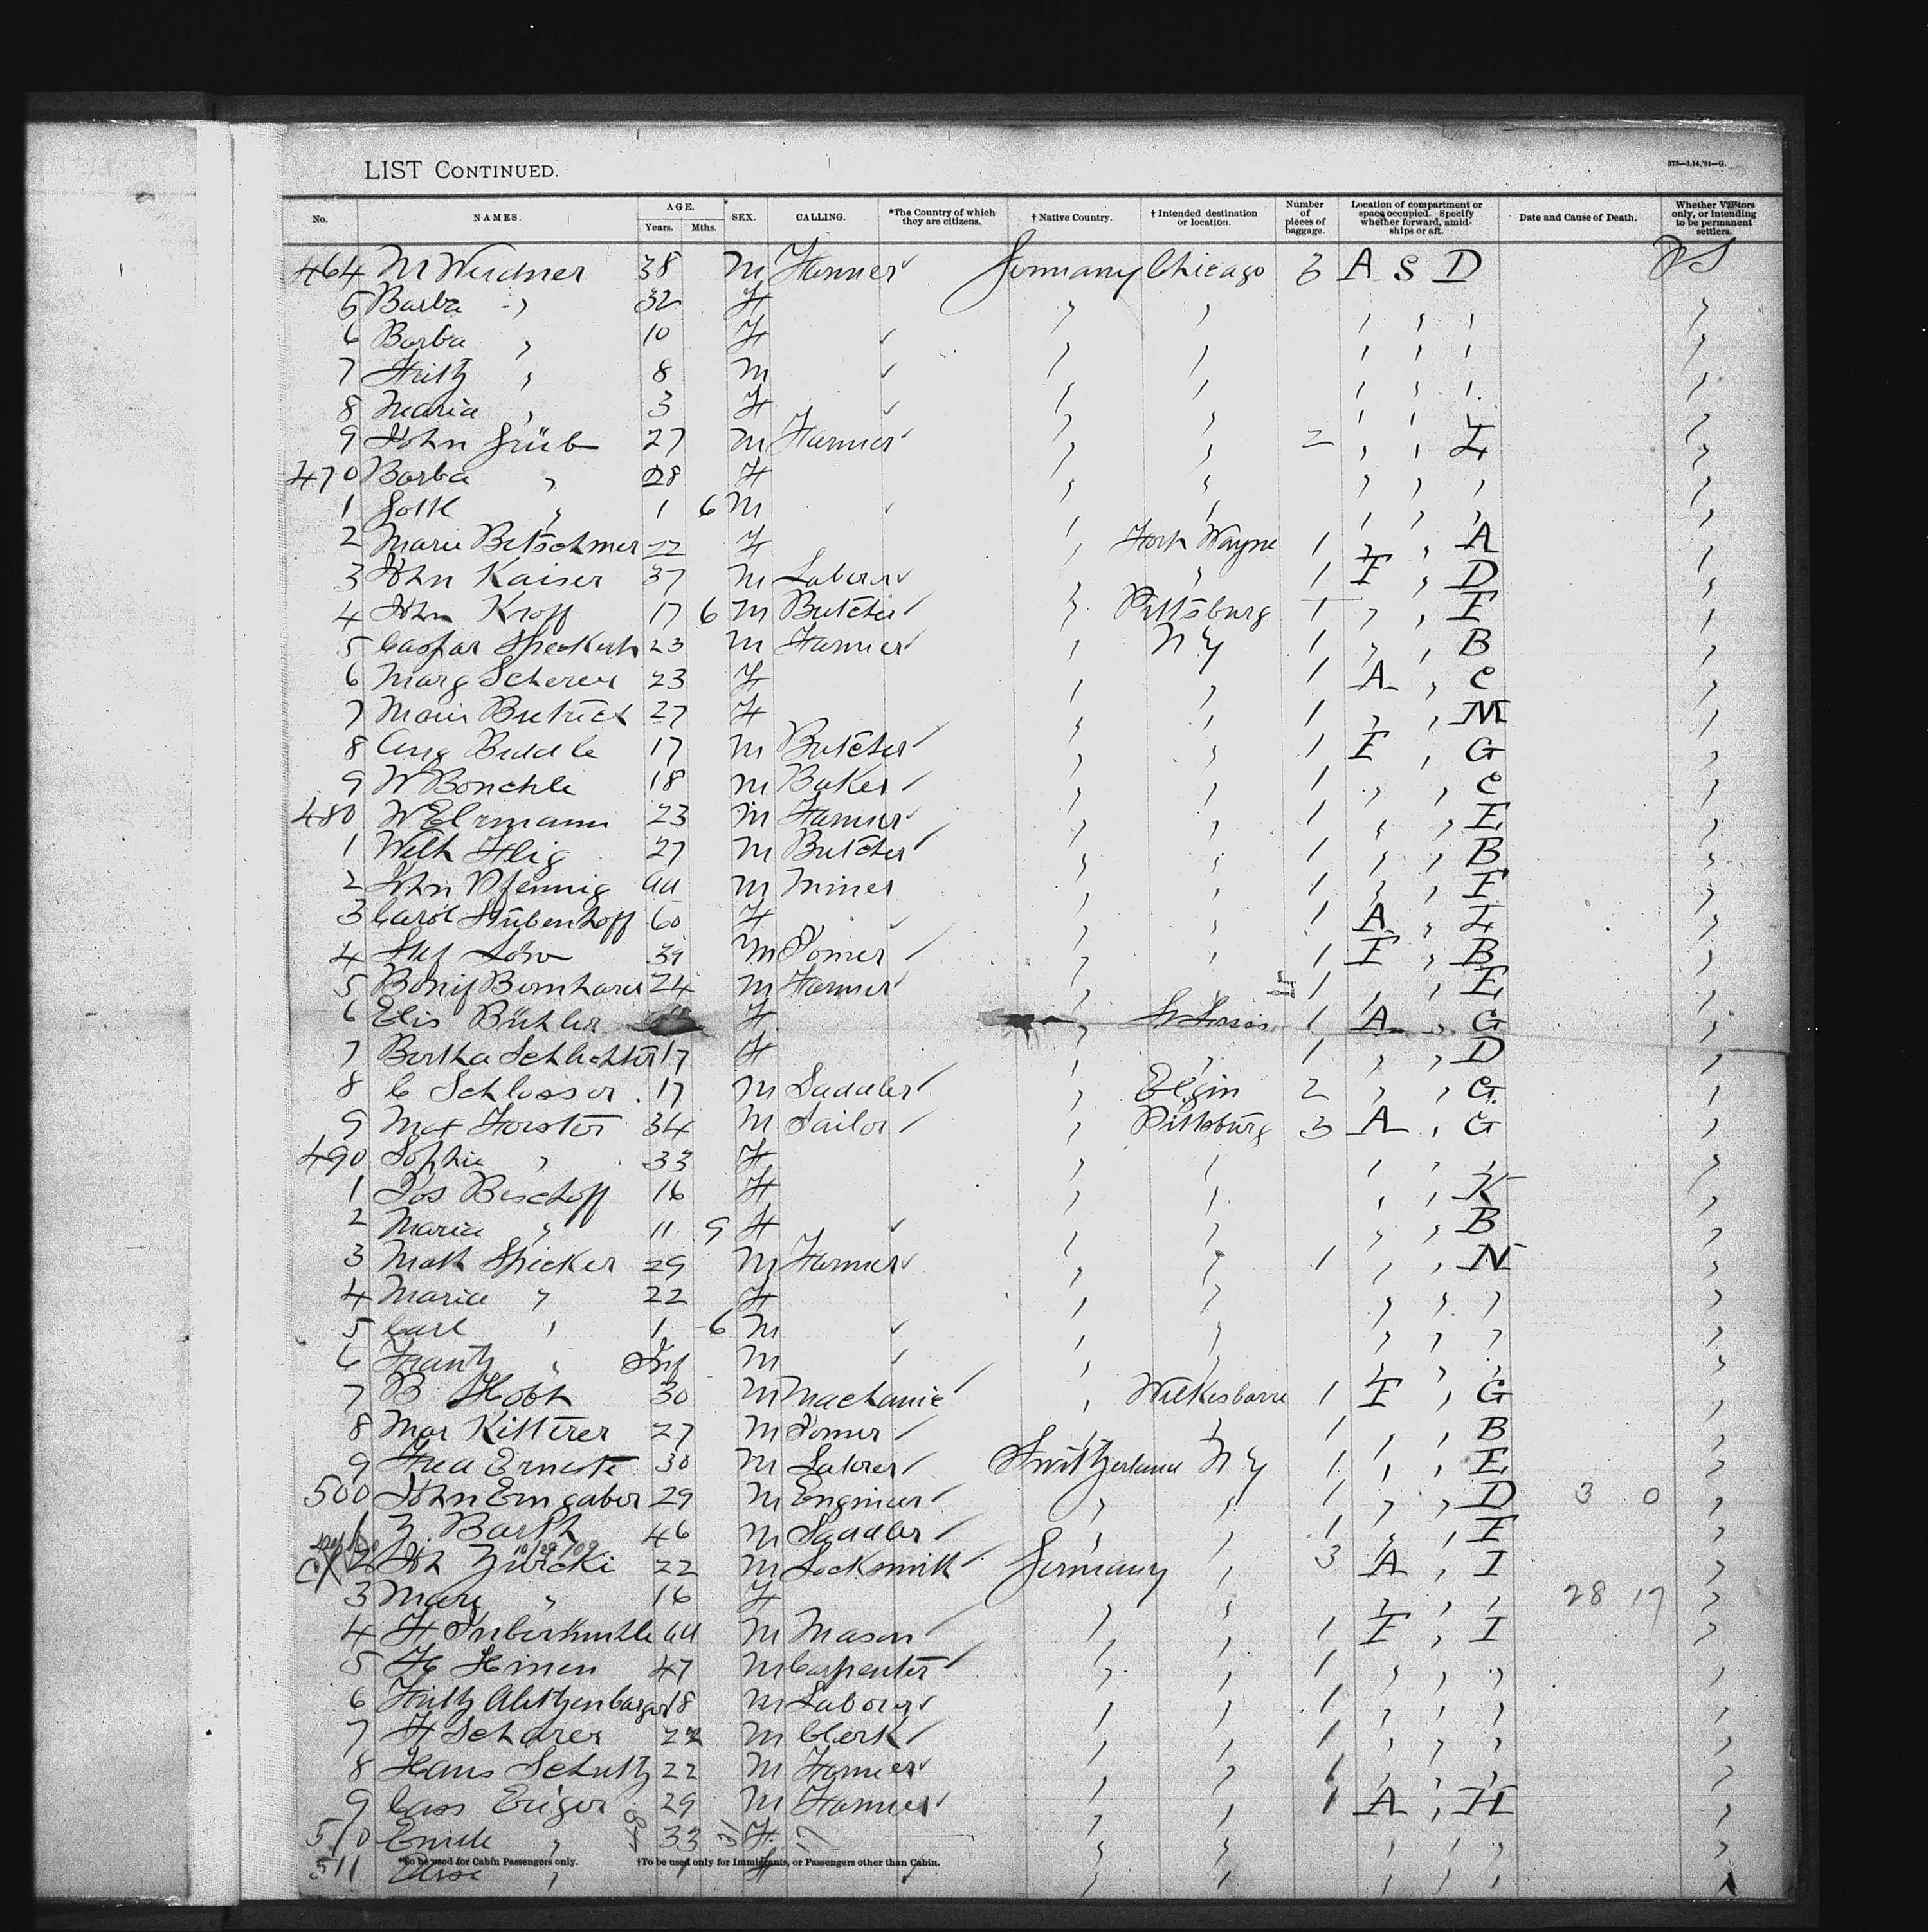 LIST CONTINUED.
373—3,14,'91—G.
No. NAMES. AGE. Years. Mths. SEX. CALLING. *The Country of which they are citizens. † Native Country. † Intended destination or location. Number of pieces of baggage. Location of compartment or space occupied. Specify whether forward, amidships or aft. Date and Cause of Death. Whether Visitors only, or intending to be permanent settlers.
464 M Weidner 38 M Farmer Germany Chicago 3 A S D
5 Barba " 32 F " " " " " "
6 Barba " 10 F " " " " " "
7 Fritz " 8 M " " " " " "
8 Maria " 3 F " " " " " "
9 John Grüb 27 M Farmer " " 2 " " L "
470 Barba " 28 F " " " " " "
1 Gottl " 1 6 M " " " " " "
2 Marie Betschmer 22 F " Fort Wayne 1 " " A "
3 John Kaiser 37 M Laborer " " 1 F " D "
4 John Kropf 17 6 M Butcher " Pittsburg 1 " " F "
5 Caspar Speckert 23 M Farmer " N Y 1 " " B "
6 Marg Scherer 23 F " " 1 A " C "
7 Marie 27 F " " 1 " " M "
8 Aug Buddle 17 M Butcher " " 1 F " G "
9 W Bonchle 18 M Baker " " 1 " " C "
480 W Elrmann 23 M Farmer " " 1 " " E "
1 Wilh 27 M Butcher " " 1 " " B "
2 John Pfennig 44 M Miner " " 1 " " F "
3 Carol Stubenhoff 60 F " " 1 A " L "
4 Stef Löw 39 M " " 1 F " B "
5 Bonif Bernhard 24 M Farmer " " 1 " " E "
6 Elis Bühler F " St Louis 1 A " G "
7 Bertha Schlachter 17 F " " 1 " " D "
8 C Schlosser 17 M Saddler " Elgin 2 " " G "
9 Mat Forster 34 M Tailor " Pittsburg 3 A " G "
490 Sophie " 33 F " " " " " "
1 Jos Bischoff 16 F " " " " K "
2 Maria " 11 9 F " " " " B "
3 Math Spicker 29 M Farmer " " 1 " " N "
4 Maria " 22 F " " " " " "
5 Carl " 1 6 M " " " " " "
6 Frantz " Inf M " " " " " "
7 B Hobt 30 M Machanic " Wilkesbarre 1 F " G "
8 Mar Kitterer 27 M " " 1 " " B "
9 Fred Erneste 30 M Laborer Switzerland N Y 1 " " E "
500 John Emgaber 29 M Engineer " " 1 " " D 3 0 "
1 Z. Barth 46 M Saddler " " 1 " " F "
10/29/09
2 Joh Zwicki 22 M Locksmith Germany " 3 A " I "
3 Mary " 16 F " " " " " 28 17 "
4 F 44 M Mason " " 1 F " I "
5 H Hinen 47 M Carpenter " " 1 " " " "
6 Fritz 18 M Laborer " " 1 " " " "
7 F Scharer 22 M Clerk " " 1 " " " "
8 Hans Schultz 22 M Farmer " " 1 " " " "
9 Cass Eriger 29 M Farmer " " 1 A " H "
510 Emile " 33 F " " " " " "
511 Elise " F " " " " " "
*To be used for Cabin Passengers only. †To be used only for Immigrants, or Passengers other than Cabin.